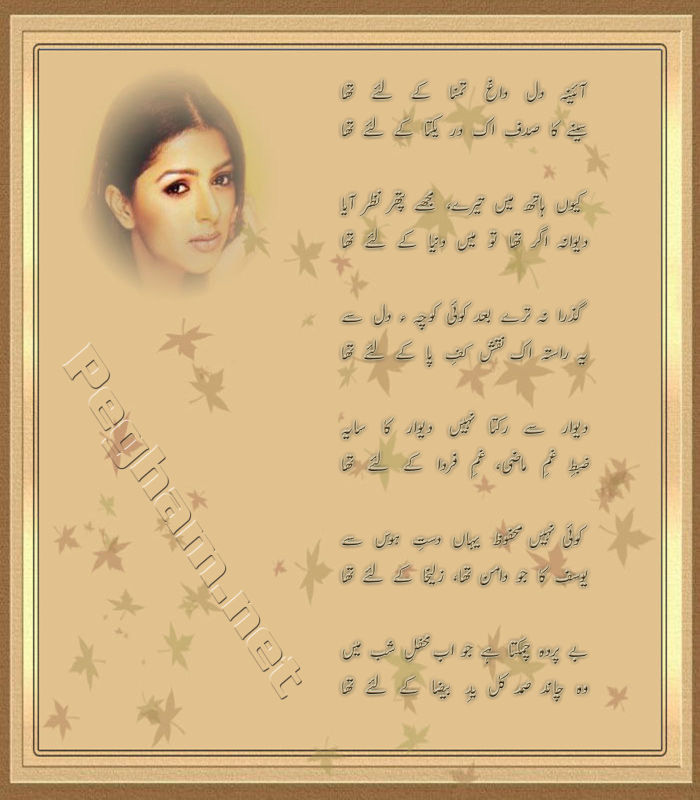 آئینہ دل داغِ تمنا کے لئے تھا
سینے کا صدف اک در یکتا کے لئے تھا
کیوں ہاتھ میں تیرے، مجھے پتھر نظر آیا
دیوانہ اگر تھا تو میں دنیا کے لئے تھا
گذرا نہ ترے بعد کوئی کوچہ ء دل سے
یہ راستہ اک نقش کفِ پا کے لئے تھا
دیوار سے رکتا نہیں دیوار کا سایہ
ضبطِ غمِ ماضی، غمِ فردا کے لئے تھا
کوئی نہیں محفوظ یہاں دستِ ہوس سے
یوسف کا جو دامن تھا، زلیخا کے لئے تھا
بے پردہ چمکتا ہے جو اب محفل شب میں
وہ چاند صمد کل یدِ بیضا کے لئے تھا
Pegham.net